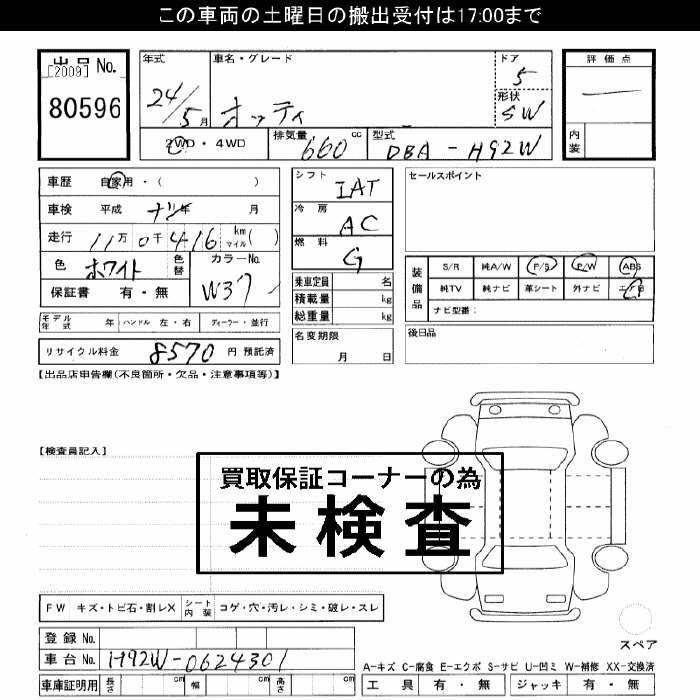 この車両の土曜日の搬出受付は17:00まで
出品 No.
[2009]
80596
年式 車名・グレード ドア
24/5月 オッティ 5
形状
SW
2WD・4WD 排気量 660 cc 型式 DBA-H92W
評価点
内装
車歴 自家用・( )
車検 平成 ナシ年 月
走行 11万 0千 416 km マイル ( )
色 ホワイト 色替 カラーNo.
W37
保証書 有・無
シフト
IAT
冷房
AC
燃料
G
乗車定員 名
積載量 kg
総重量 kg
名変期限
月 日
セールスポイント
装備品 S/R 純A/W P/S P/W ABS
純TV 純ナビ 革シート 外ナビ
ナビ型番:
後日品
モデル年式 年 ハンドル 左・右 ディーラー・並行
リサイクル料金 8570 円 預託済
【出品店申告欄(不良箇所・欠品・注意事項等)】
【検査員記入】
買取保証コーナーの為
未検査
FW キズ・トビ石・割レX シート内装 コゲ・穴・汚レ・シミ・破レ・スレ
登録 No.
車台 No. H92W-0624301
車庫証明用 長さ cm 幅 cm 高さ cm
スペア
A-キズ C-腐食 E-エクボ S-サビ U-凹ミ W-補修 XX-交換済
工具 有・無 ジャッキ 有・無